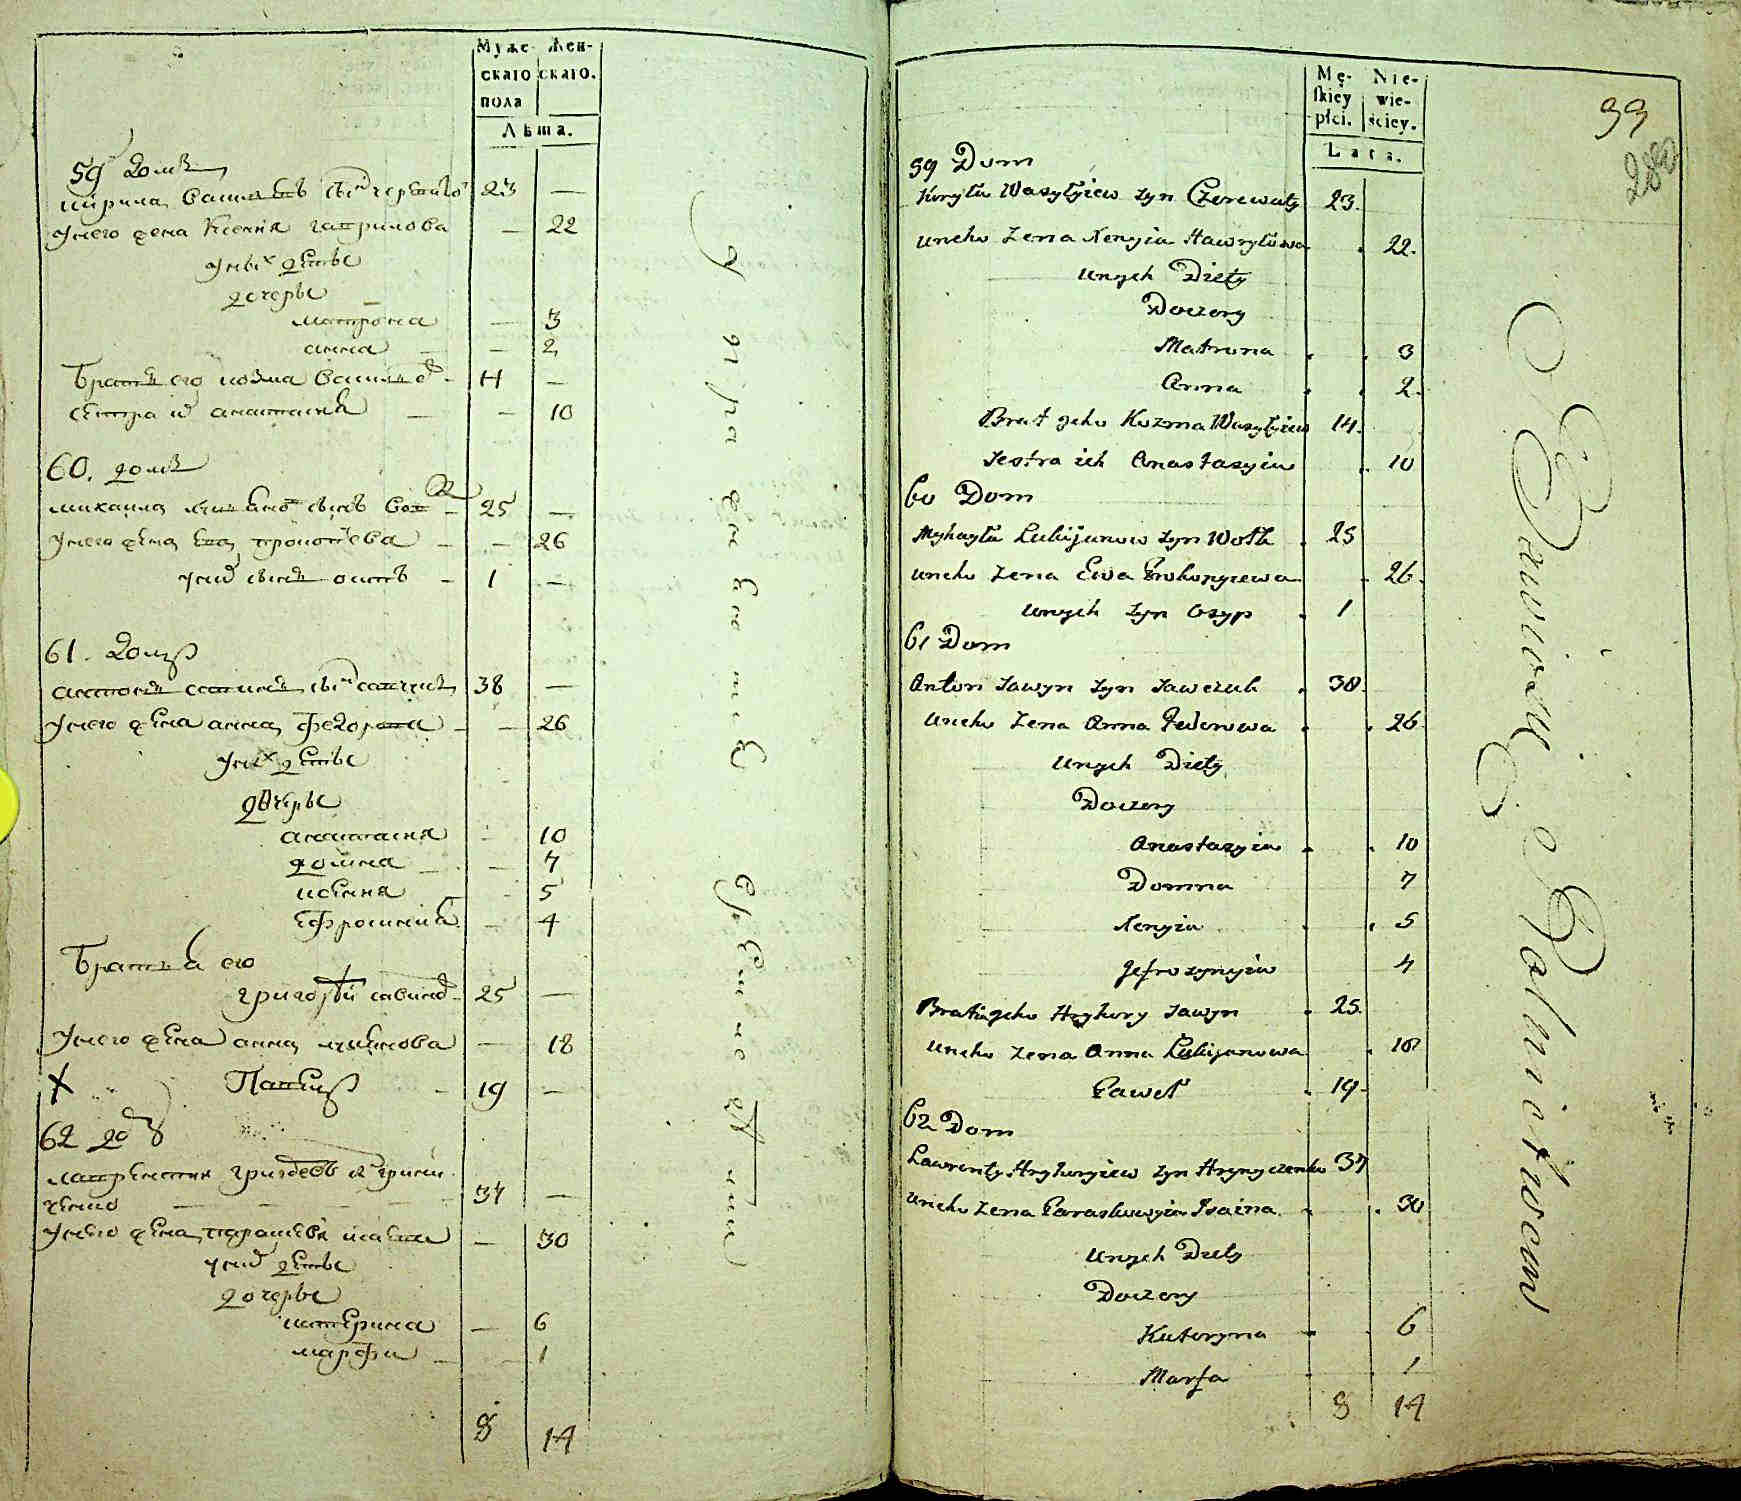 Муже- Жен-
скаго скаго.
пола
Лѣта.
59 домъ
кирила василевъ сынъ череватой 23 —
унего жена ксения гаврилова — 22
унихъ дети
дочеры
матрона — 3
анна — 2
братъ его козма василевъ 14 —
сестра их анастасия — 10
60. домъ
михаила лукянов сынъ вовк 25 —
унего жена ева прокопиева — 26
уних сынъ осипъ 1 —
61. домъ
антонъ савинъ сынъ савчукъ 38 —
унего жена анна федорова — 26
уних дети
дочеры
анастасия — 10
домна — 7
ксения — 5
ефросиния — 4
братья его
григорей савинов 25 —
унего жена анна лукянова — 18
Павелъ 19 —
62 до
лаврентий григорев сынъ грини
ченко 37 —
унего жена парасковия исаина — 30
уних дети
дочеры
катерина — 6
марфа — 1
8 14
Mę- Nie-
ſkiey wie-
płci. ściey.
Lata.
99
280
59 Dom
Kiryła Wasyłyiew syn Czerewaty 23.
uneho Zena Xenyia Hawryłowa 22.
unych Diety
Doczery
Matrona 3
Anna 2.
Brat jeho Kozma Wasyłyiew 14.
Sestra ich Anastazyia 10
60 Dom
Myhayła Łukijanow syn Wołk 25
uneho Zena Ewa Prokopyiewa 26.
unych syn Osyp 1
61 Dom
Anton Sawyn syn Sawczuk 38.
uneho Zena Anna Fedorowa 26
unych Diety
Doczery
Anastazyia 10
Domna 7
Xenyia 5
Jefrozynyia 4
Bratia jeho Hryhory Sawyn 25.
uneho Zena Anna Łukijanowa 18
Paweł 19.
62 Dom
Lawrenty Hryhoryiew syn Hrynyczenko 37
uneho Zena Paraskowyia Isaina 30
unych Diety
Doczery
Kateryna 6
Marfa 1
8 14
Bawiący się Rolnictwem